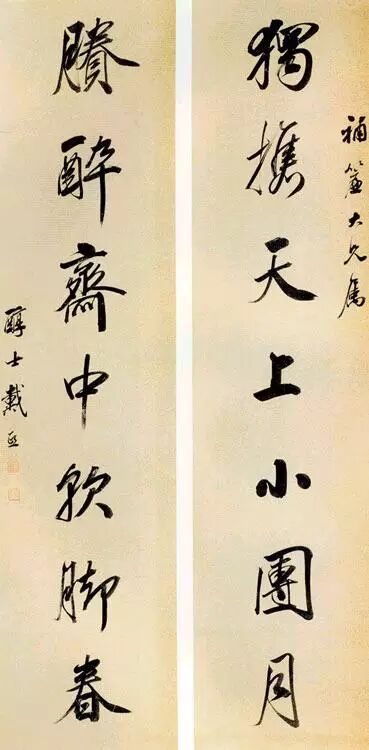 補簾大兄屬
獨攜天上小團月
賸醉齋中軟腳春
醇士戴熙